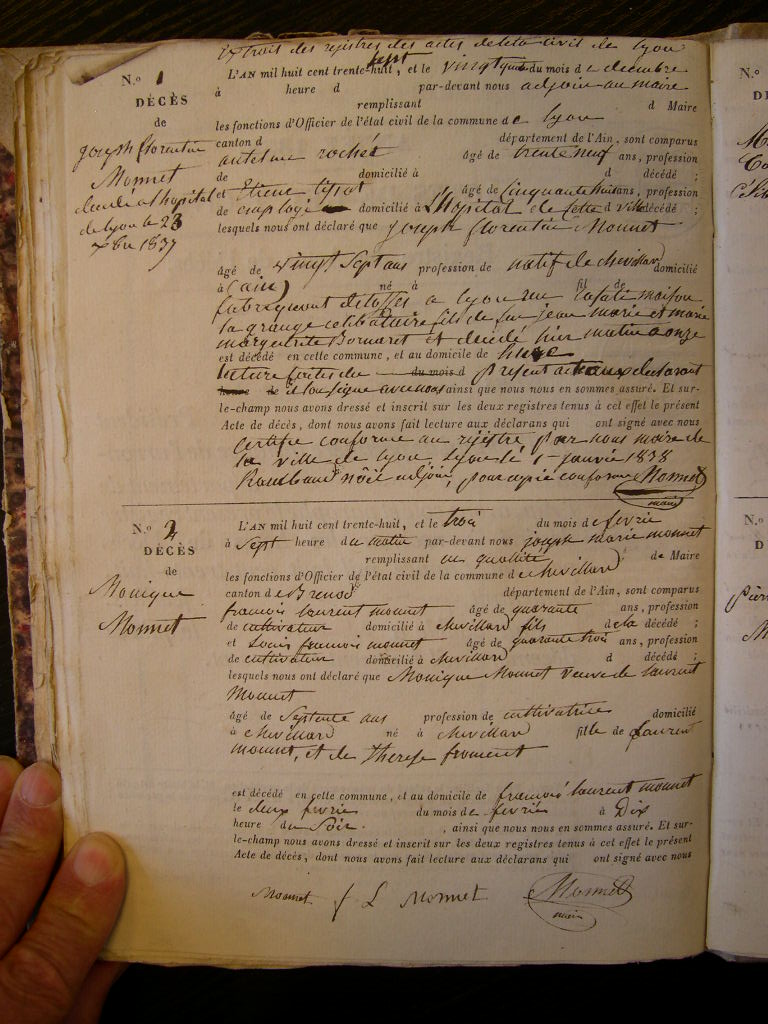 Extrait des registres des actes de létat civil de Lyon
N.o 1
DÉCÈS
de
joseph florentin
Monnet
décédé a lhopital
de lyon le 23
xbre 1837
L'AN mil huit cent trente-huit, sept et le vingt quatre du mois de décembre
à heure d par-devant nous adjoin au maire
remplissant d Maire
les fonctions d'Officier de l'état civil de la commune de lyon
canton d département de l'Ain, sont comparus
antelme rochet âgé de trente neuf ans, profession
de domicilié à d décédé ;
et Etiene tissot âgé de Cinquante huit ans, profession
de employé domicilié à L'hopital de cette d ville décédé ;
lesquels nous ont déclaré que joseph florentin Monnet
âgé de vingt Sept ans profession de natif de chevillard domicilié
à (ain) né à fil de
fabriquant detoffes a lyon rue maison
la grange celibattaire fils de feu jean marie et marie
margueritte Bornaret et décédé hier matin a onze
est décédé en cette commune, et au domicile de heure
lecture faites du du mois d présent acte aux déclarant
heure de il lon signé avec nous ainsi que nous nous en sommes assuré. Et sur-
le-champ nous avons dressé et inscrit sur les deux registres tenus à cet effet le présent
Acte de décès, dont nous avons fait lecture aux déclarans qui ont signé avec nous
certifié conforme au rejistre par nous maire de
la ville de lyon, Lyon le 1er janvié 1838
adjoin, pour copie conforme Monnet
maire
N.o 2
DÉCÈS
de
Monique
Monnet
L'AN mil huit cent trente-huit, et le trois du mois de fevrié
à Sept heure du matin par-devant nous joseph marie monnet
remplissant en qualité de Maire
les fonctions d'Officier de l'état civil de la commune de chevillard
canton de Brenod département de l'Ain, sont comparus
francois laurent monnet âgé de quarante ans, profession
de cultivateur domicilié à chevillard fils de la décédé ;
et Louis francois monnet âgé de quarante trois ans, profession
de cultivateur domicilié à chevillard d décédé ;
lesquels nous ont déclaré que Monique Monnet veuve de laurent
Monnet
âgé de Septente ans profession de cultivatrice domicilié
à chevillard né à chevillard fille de Laurent
monnet, et de therese froment
est décédé en cette commune, et au domicile de francois laurent monnet
le deux fevrié du mois de fevrié à Dix
heure du Soir , ainsi que nous nous en sommes assuré. Et sur-
le-champ nous avons dressé et inscrit sur les deux registres tenus à cet effet le présent
Acte de décès, dont nous avons fait lecture aux déclarans qui ont signé avec nous
Monnet f L Monnet Monnet
maire
N.o